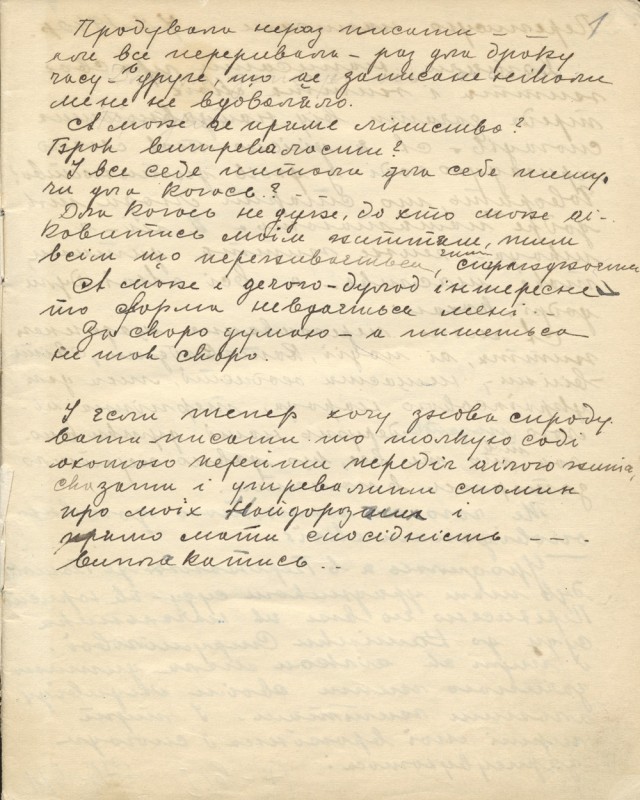 1
Продувала нераз писати –
але все переривала – раз для браку
часу – в друге, що це записане ніколи
мене не вдоваляло.
А може це прямо лінивство?
Брак витревалости?
І все себе питала для себе пишу,
чи для когось? – –
Для когось не дуже, бо хто може ці-
кавитись моїм життям, тим
всім що переживається, чим
А може і дечого було б інтересне
то форма невдається мені . –
За скоро думаю – а пишеться
не так скоро.
І если тепер хочу знова спроду
вати – писати то толкую собі
охотою перейти перебіг цілого життя,
сказати і утревалити спомин
про моїх Найдорозших і
прямо мати спосібність – – – .
виплакатись . .